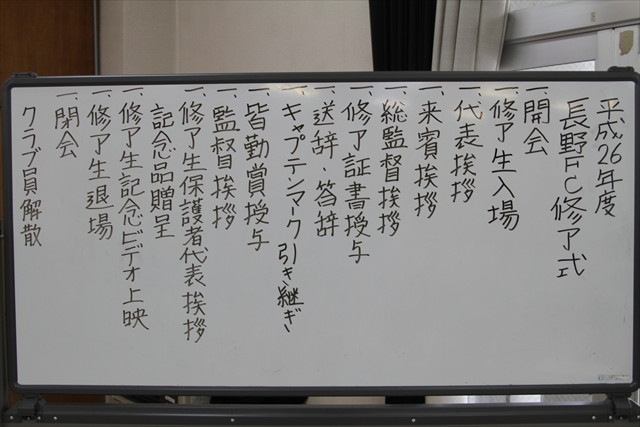 平成26年度
長野FC修了式
一、開会
一、修了生入場
一、代表挨拶
一、来賓挨拶
一、総監督挨拶
一、修了証書授与
一、送辞・答辞
一、キャプテンマーク引き継ぎ
一、皆勤賞授与
一、監督挨拶
一、修了生保護者代表挨拶
記念品贈呈
一、修了生記念ビデオ上映
一、修了生退場
一、閉会
クラブ員解散